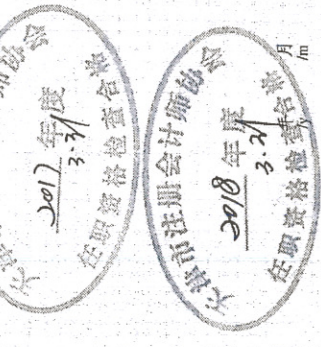 天津
师协会
2017 年度
3.31
任职资格检查合格
天津市注册会计师协会
2018 年度
任职资格检查合格
月
/m